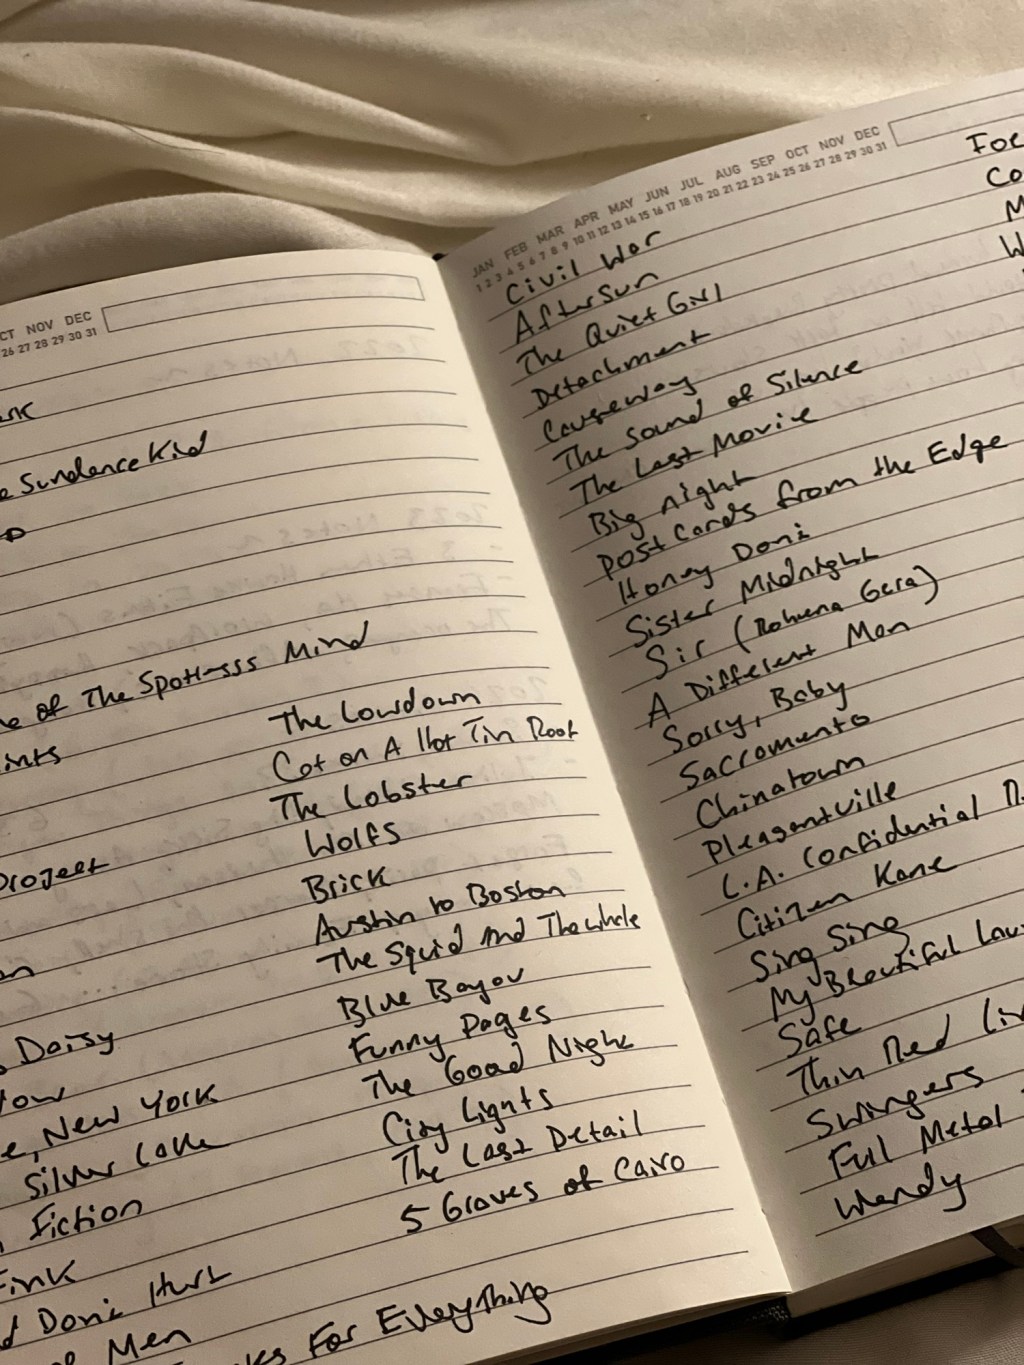 NOV DEC
26 27 28 29 30 31
Sundance Kid
of The Spotlesss Mind
Project
Daisy
New York
Silver Lake
Fiction
Fink
Doni Hurt
Men
For Everything
The Lowdown
Cat on A Hot Tin Roof
The Lobster
Wolfs
Brick
Austin to Boston
The Squid And The whale
Blue Bayou
Funny Pages
The Good Night
City Lights
The Last Detail
5 Graves of Cairo
JAN FEB MAR APR MAY JUN JUL AUG SEP OCT NOV DEC
1 2 3 4 5 6 7 8 9 10 11 12 13 14 15 16 17 18 19 20 21 22 23 24 25 26 27 28 29 30 31
Civil War
Aftersun
The Quiet Girl
Detachment
Causeway
The Sound of Silence
The Last Movie
Big night
Post Cards from the Edge
Honey Doni
Sister Midnight
Sir (Rohena Gera)
A Different Man
Sorry, Baby
Sacramento
Chinatown
Pleasantville
L.A. Confidential
Citizen Kane
Sing Sing
My Beautiful
Safe
Thin Red
Swingers
Full Metal
Wendy